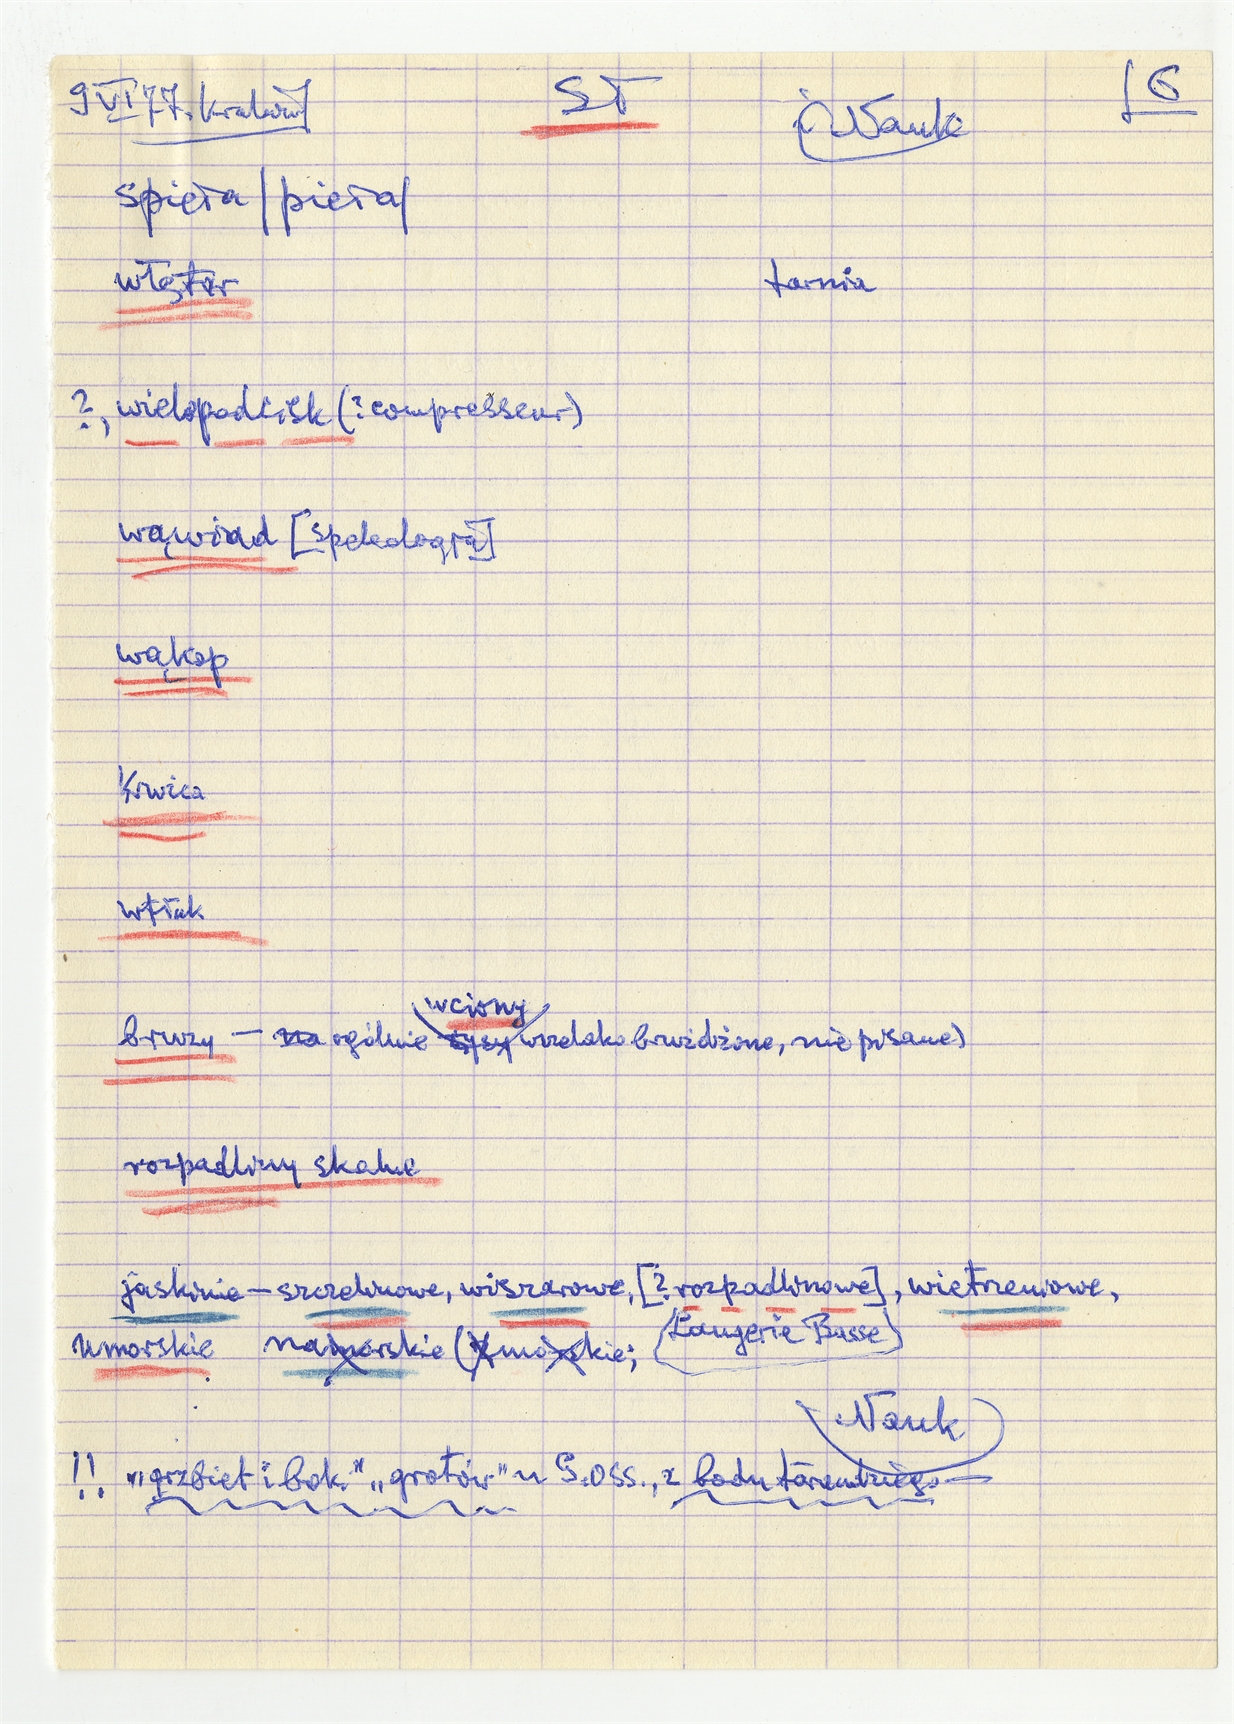 9 VI 77. Kraków
ST
i Nauk
6
spieła /pieła/
tarnia
?, wielopodcisk (? compresseur)
wąwiad [speleologia]
wąkop
Krwica
wtłak
wciosy
bruzy — na ogólnie wszelako bruźdżone, nie pisane)
rozpadliny skalne
jaskinie — szczelinowe, wiszarowe, [? rozpadlinowe], wietrzeniowe,
umorskie namorskie (Ymorskie; (Laugerie Basse)
Nauk
!! „grzbiet i bok" „grotów" u G. Oss., z